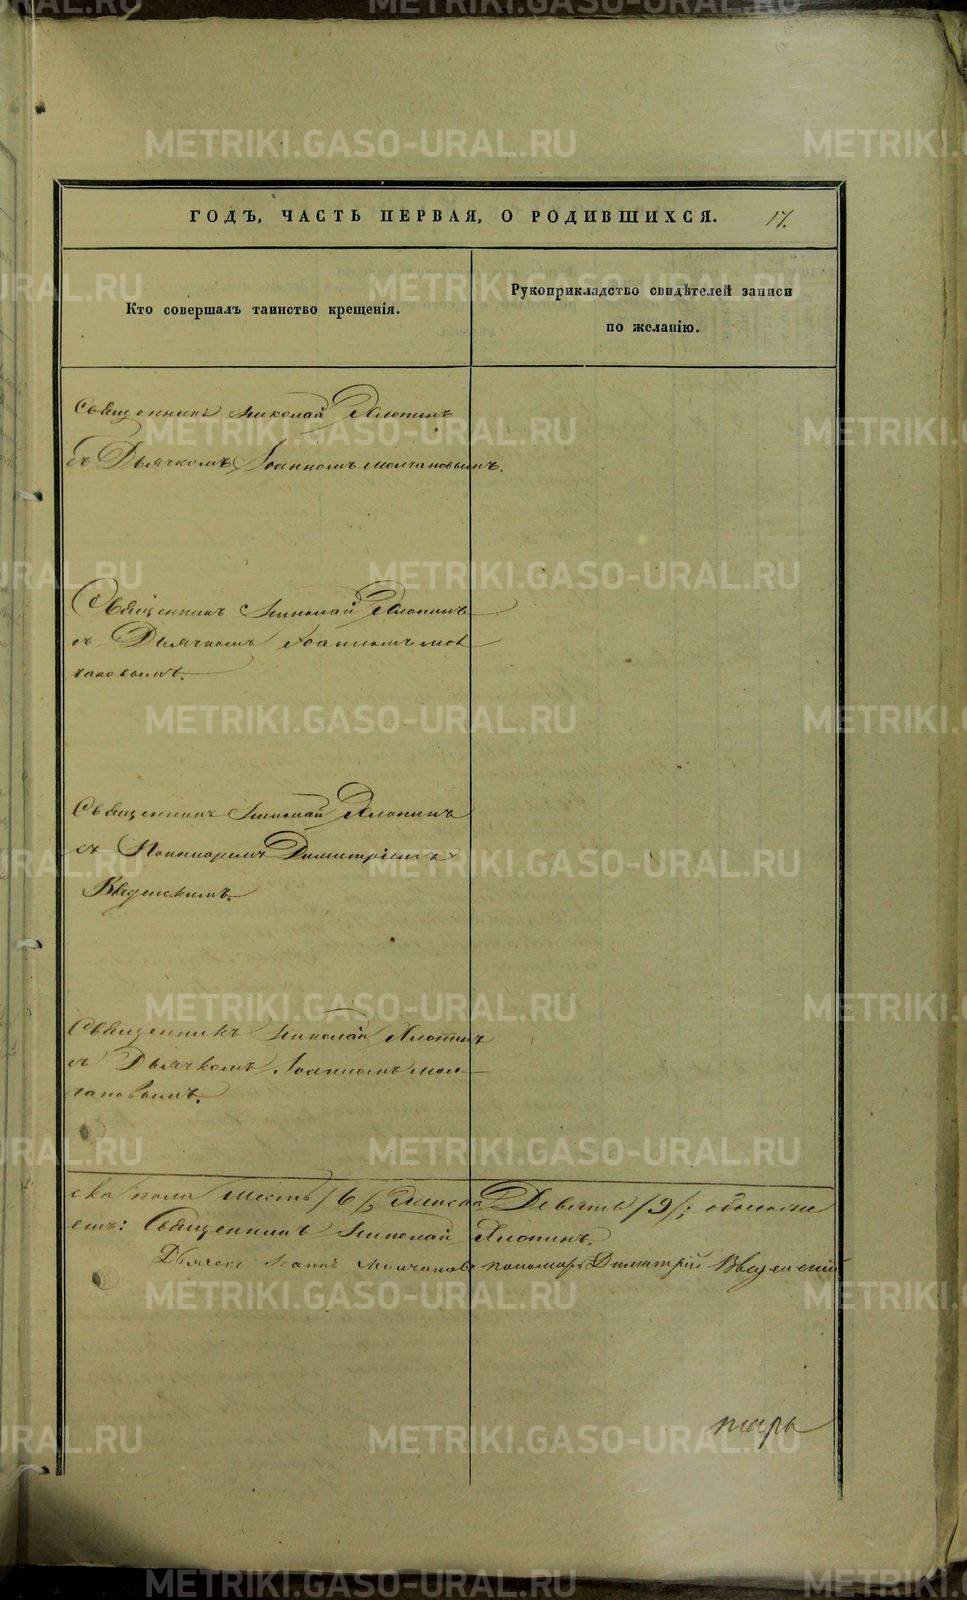 METRIKI.GASO-URAL.RU
ГОДЪ, ЧАСТЬ ПЕРВАЯ, О РОДИВШИХСЯ. 17.
Кто совершалъ таинство крещенія.
Рукоприкладство свидѣтелей записи
по желанію.
Священникъ Николай Хлопинъ
съ Дьячкомъ Іоанномъ Молчановымъ.
Священникъ Николай Хлопинъ
съ Дьячкомъ Іоанномъ Мол
чановымъ.
Священникъ Николай Хлопинъ
съ Пономаремъ Димитріемъ
Введенскимъ.
Священникъ Николай Хлопинъ
съ Дьячкомъ Іоанномъ Мол
чановымъ.
ска пола шесть /6/, Женска Девять /9/; обоего
Священникъ Николай Хлопинъ.
Дьячекъ Іоаннъ Молчановъ пономарь Димитрій Введенскій